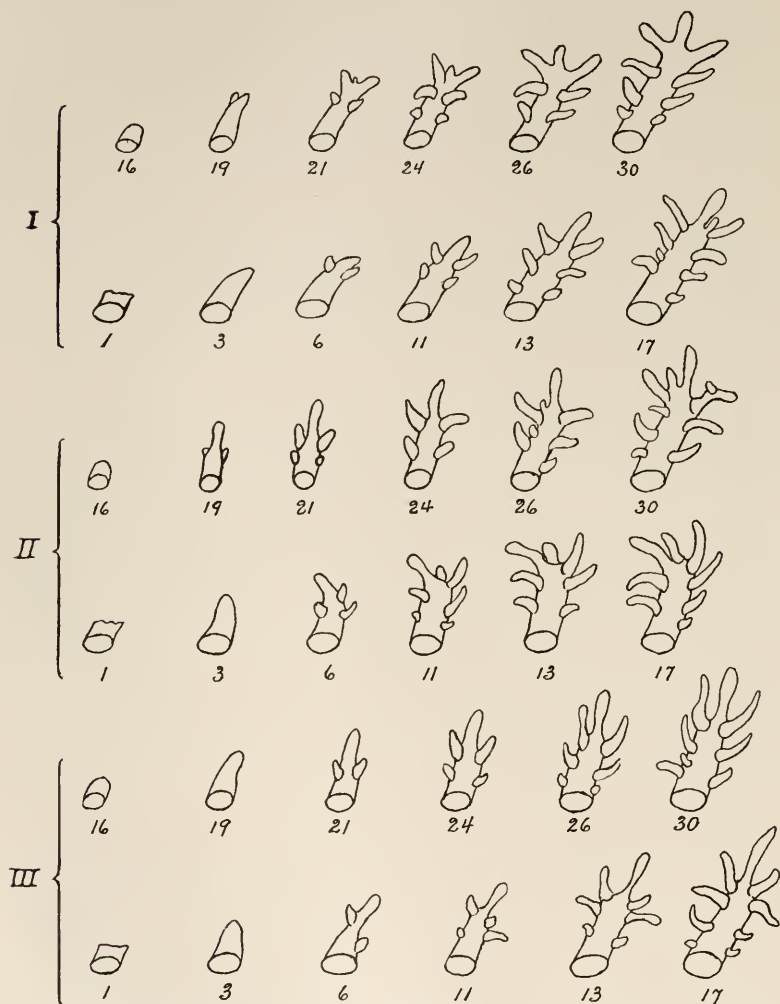 16 19 21 24 26 30
I
1 3 6 11 13 17
16 19 21 24 26 30
II
1 3 6 11 13 17
16 19 21 24 26 30
III
1 3 6 11 13 17